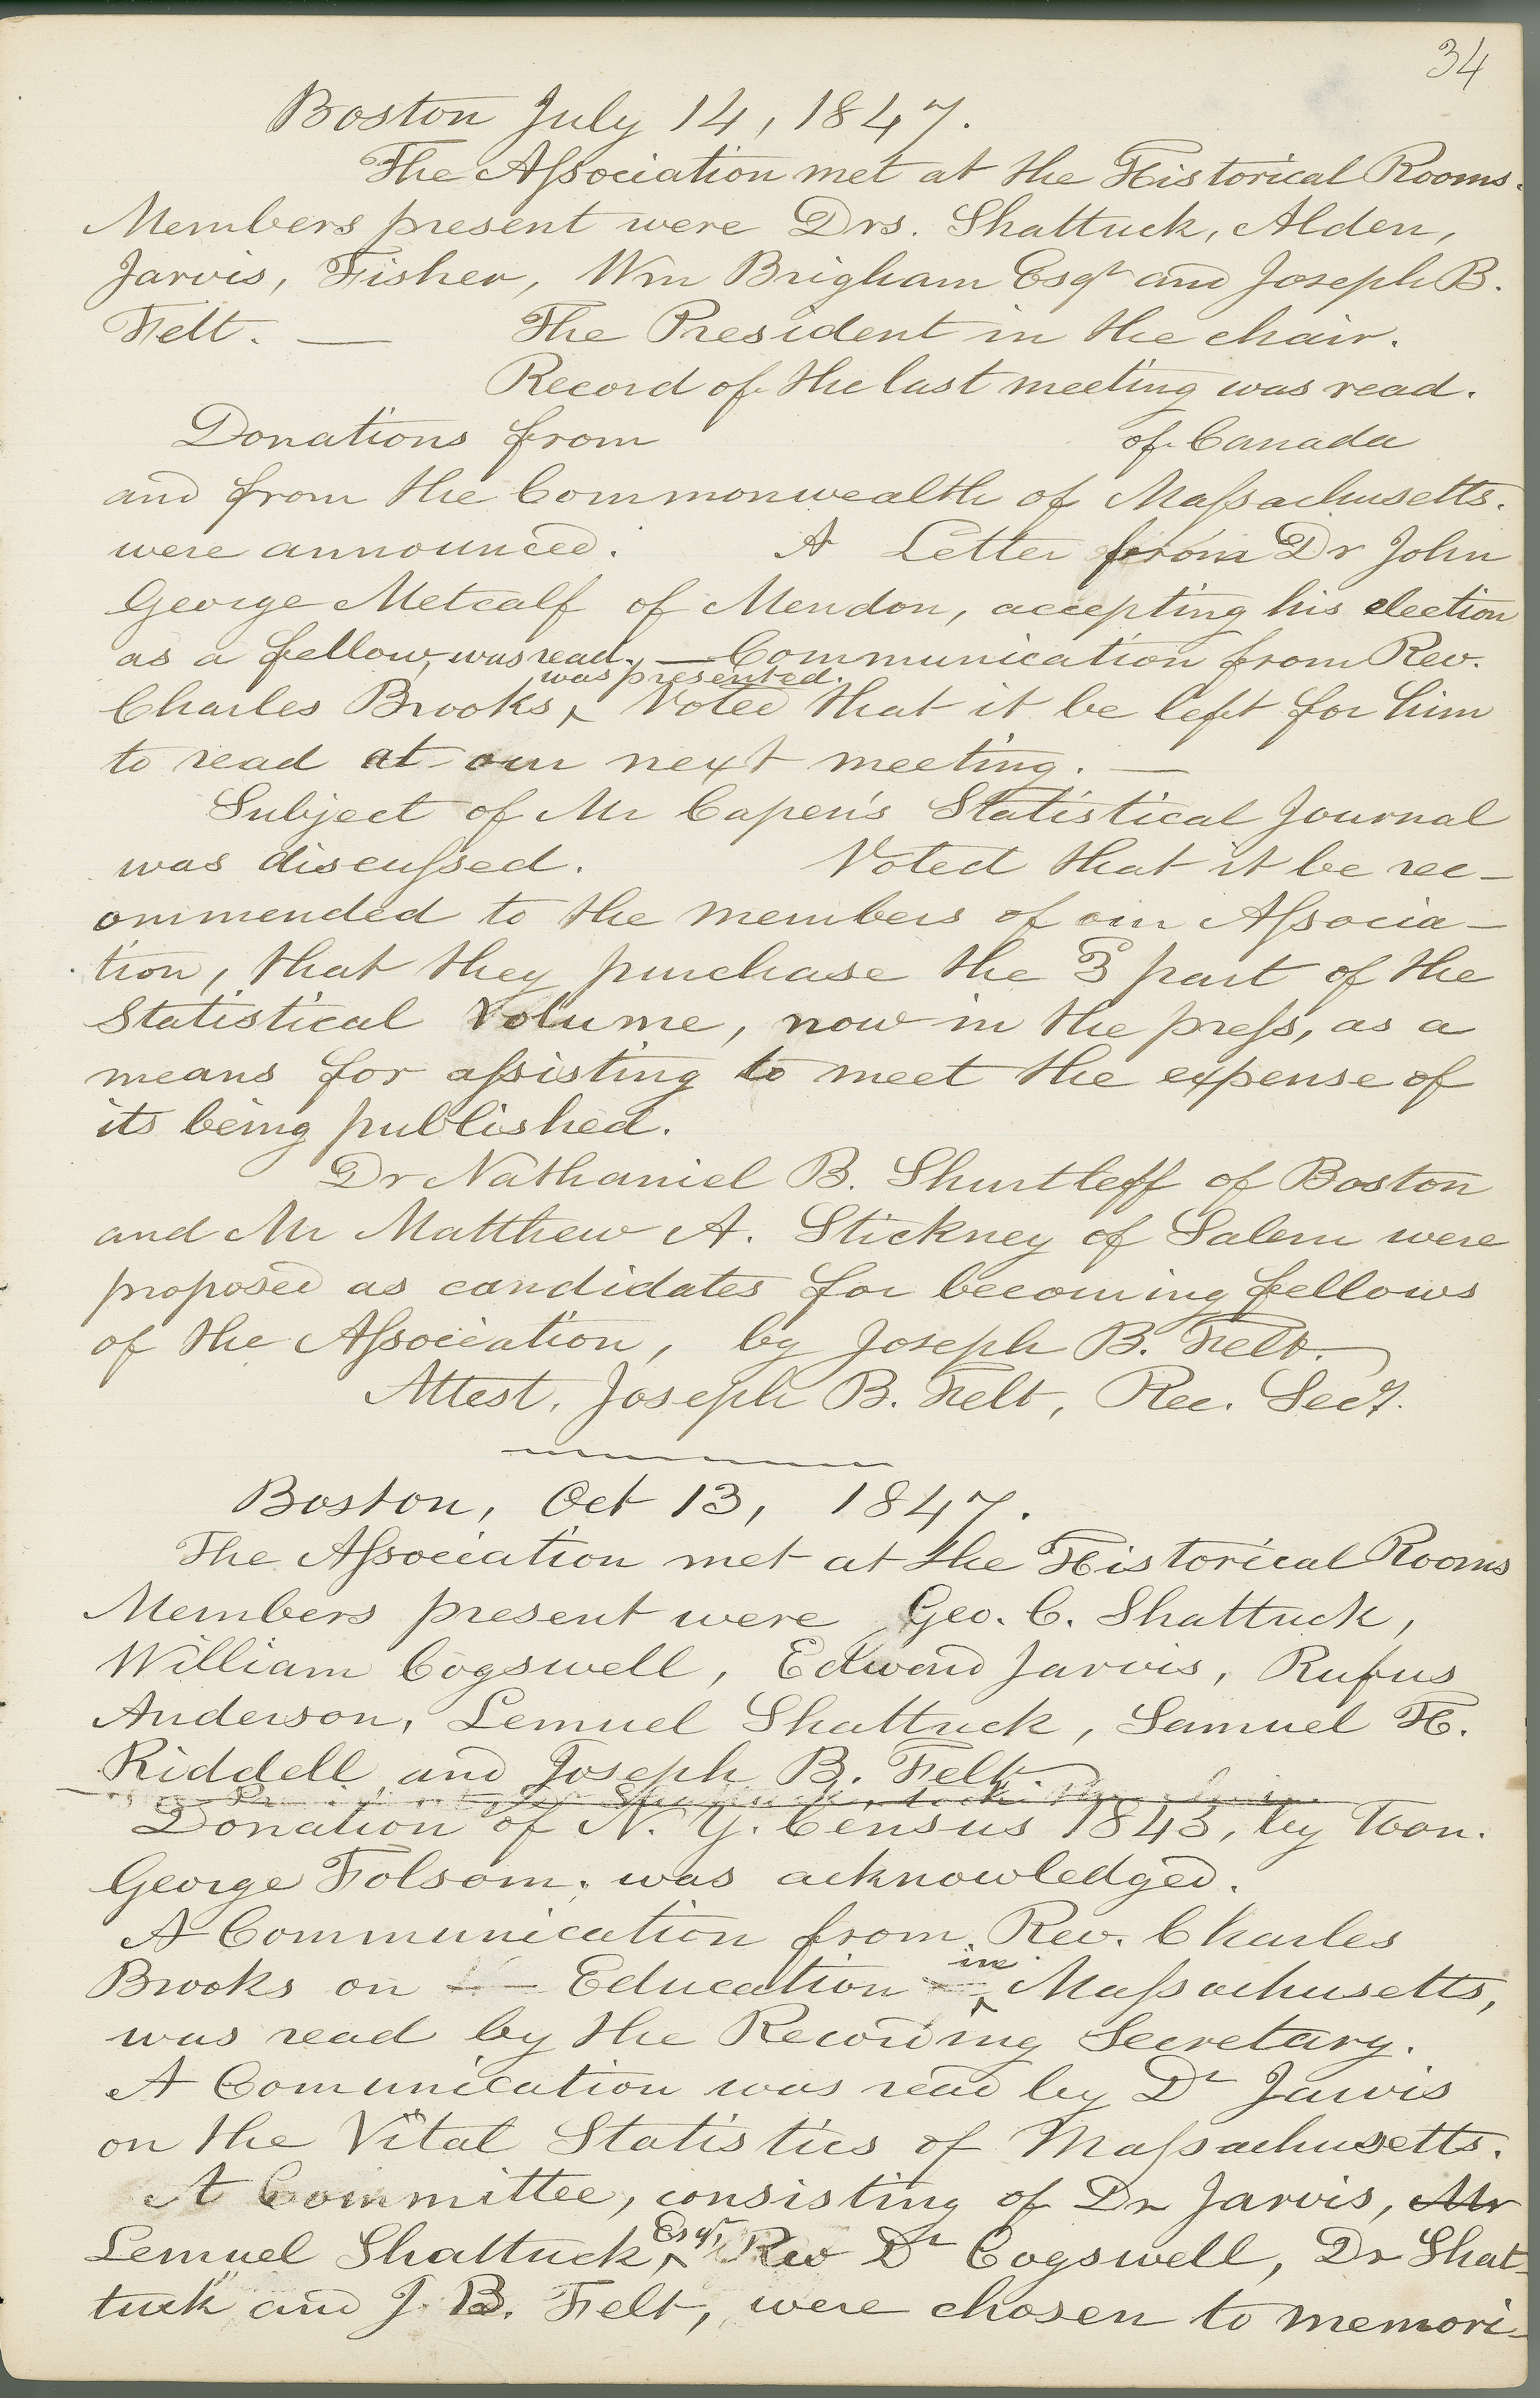 34
Boston July 14, 1847.
The Association met at the Historical Rooms.
Members present were Drs. Shattuck, Alden,
Jarvis, Fisher, Wm Brigham Esqr and Joseph B.
Felt. — The President in the chair.
Record of the last meeting was read.
Donations from of Canada
and from the Commonwealth of Massachusetts.
were announced. A Letter from Dr John
George Metcalf of Mendon, accepting his election
as a fellow, was read. — Communication from Rev.
was presented.
Charles Brooks, ‸ Voted that it be left for him
to read at our next meeting. —
Subject of Mr Capen's Statistical Journal
was discussed. Voted that it be rec-
ommended to the members of our Associa-
tion, that they purchase the 3 part of the
Statistical Volume, now in the press, as a
means for assisting to meet the expense of
its being published.
Dr Nathaniel B. Shurtleff of Boston
and Mr Matthew A. Stickney of Salem were
proposed as candidates for becoming fellows
of the Association, by Joseph B. Felt.
Attest, Joseph B. Felt, Rec. Secy.
Boston, Oct 13, 1847.
The Association met at the Historical Rooms
Members present were Geo. C. Shattuck,
William Cogswell, Edward Jarvis, Rufus
Anderson, Lemuel Shattuck, Samuel H.
Riddell and Joseph B. Felt.
Donation of N. Y. Census 1845, by Hon.
George Folsom, was acknowledged.
A Communication from Rev. Charles
in
Brooks on Education ‸ Massachusetts,
was read by the Recording Secretary.
A Comunication was read by Dr Jarvis
on the Vital Statistics of Massachusetts.
A Committee, consisting of Dr Jarvis, Mr
Esqr,
Lemuel Shattuck ‸ Rev Dr Cogswell, Dr Shat-
tuck and J. B. Felt, were chosen to memori-